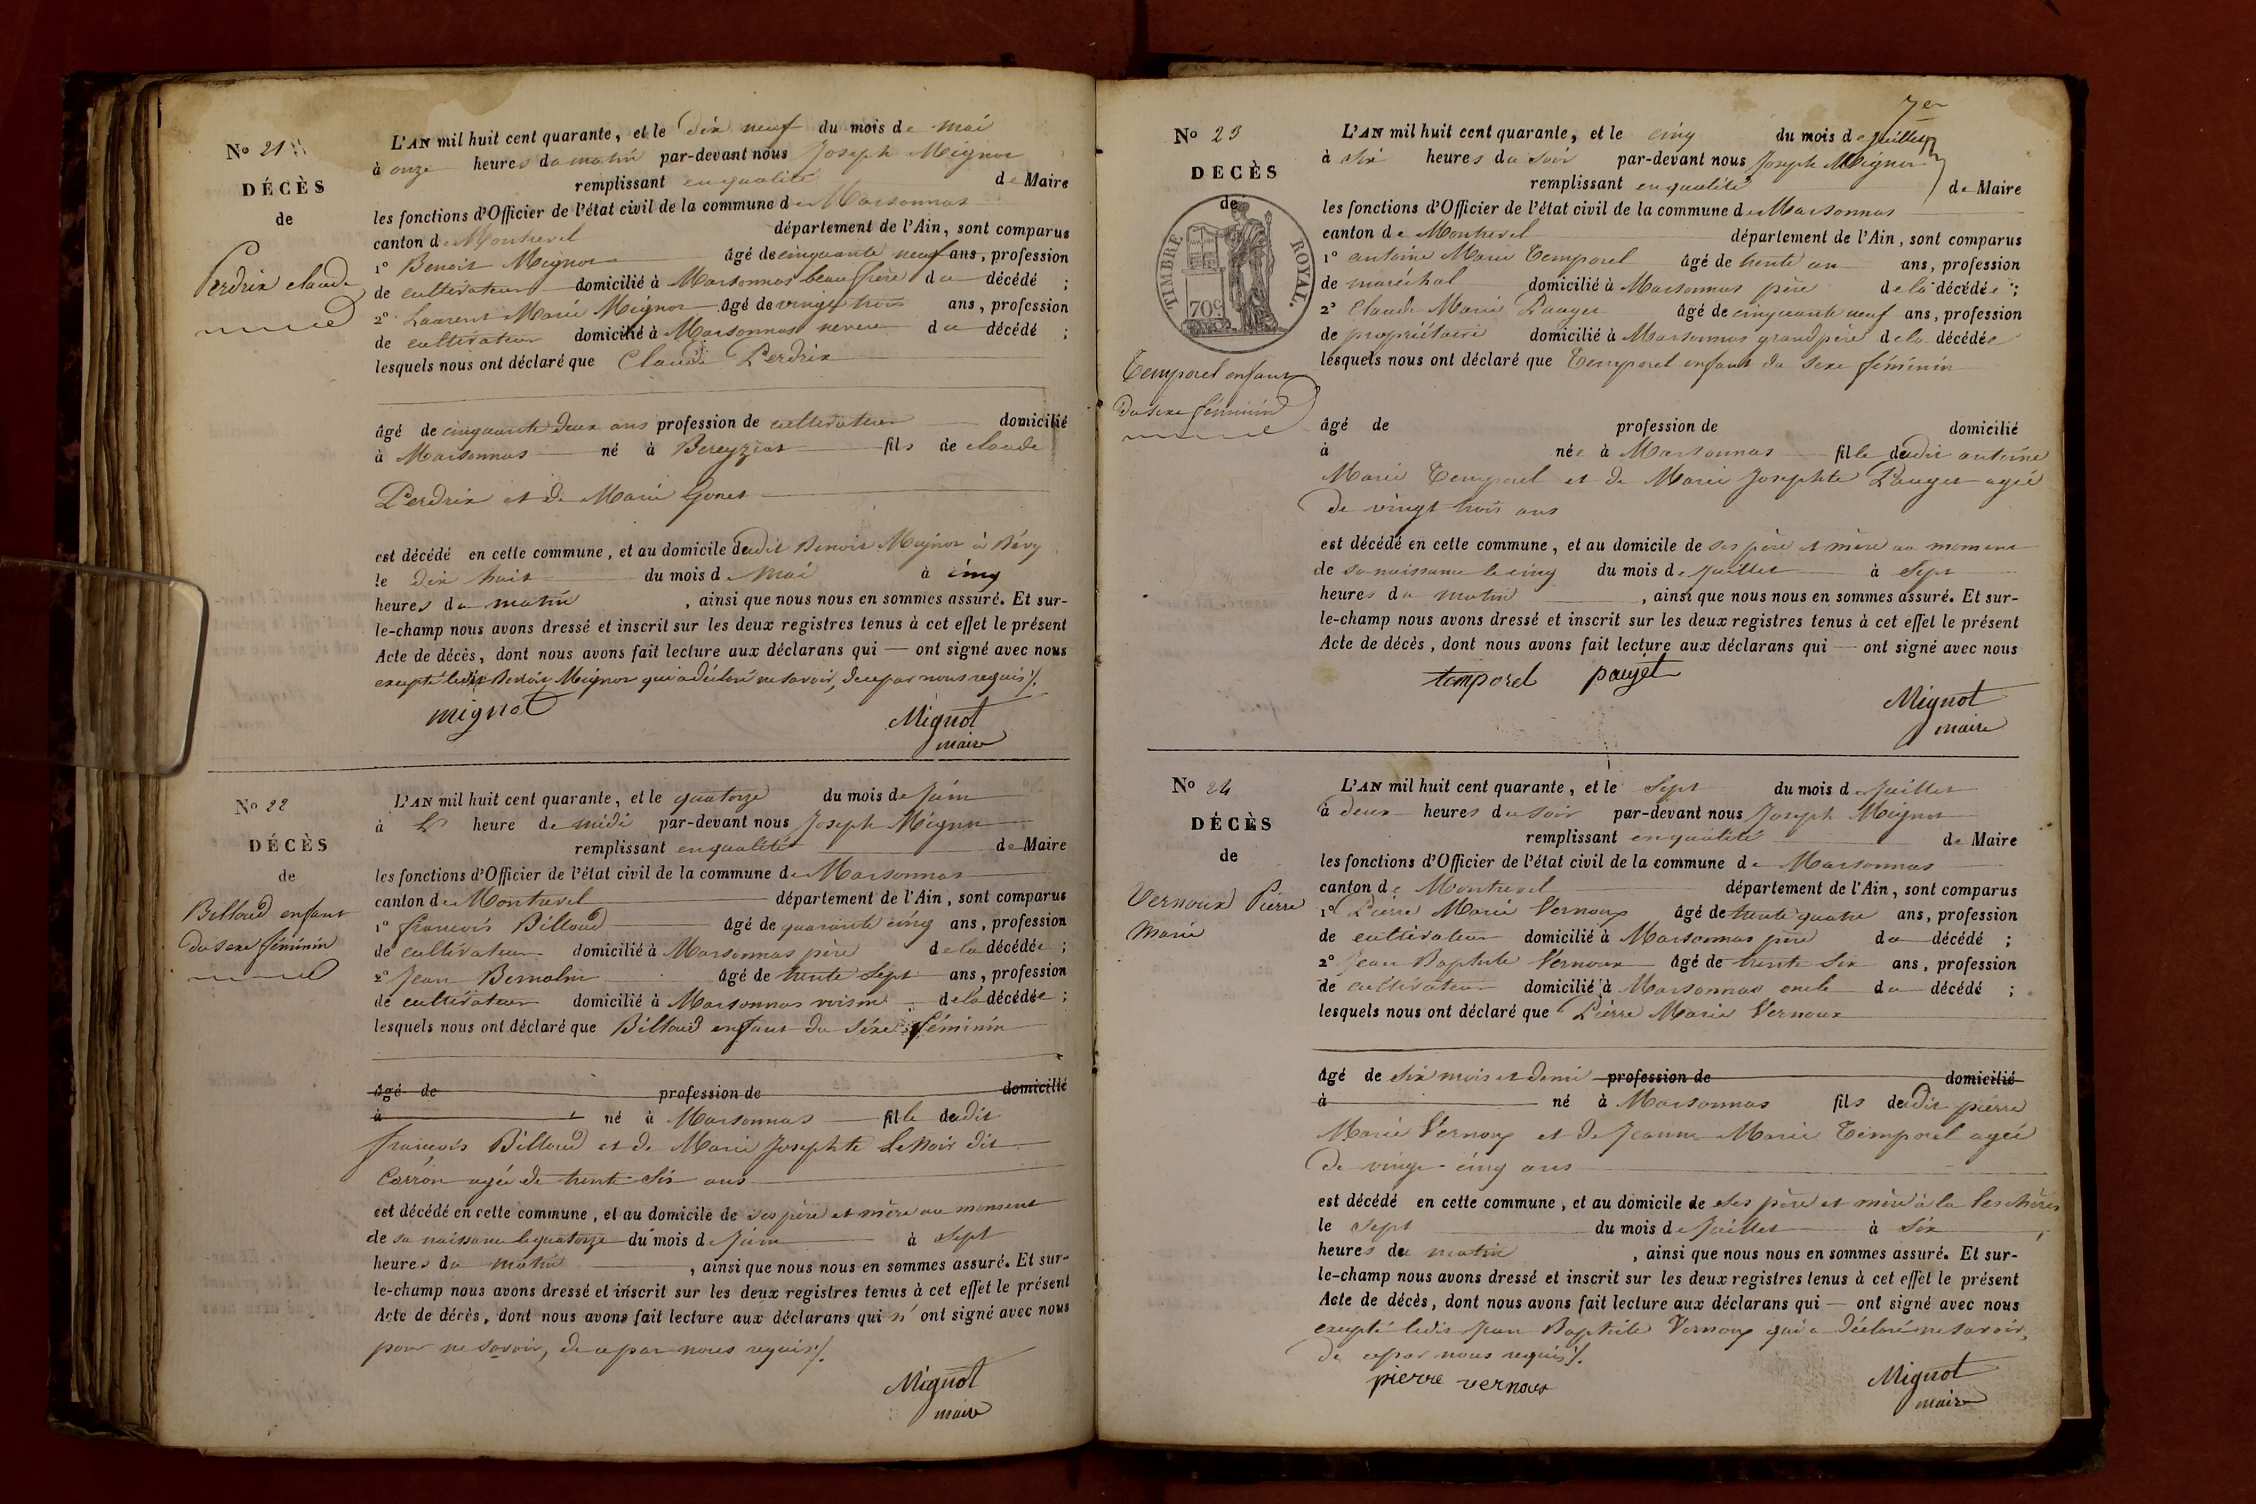 No 21
DÉCÈS
de
Perdrix claude
L'AN mil huit cent quarante, et le dix neuf du mois de mai
à onze heures du matin par-devant nous Joseph Mignot
remplissant en qualité de Maire
les fonctions d'Officier de l'état civil de la commune de Marsonnas
canton de Montrevel département de l'Ain, sont comparus
1° Benoit Mignot âgé de cinquante neuf ans, profession
de cultivateur domicilié à Marsonnas beau frère du décédé ;
2° Laurent Marie Mignot âgé de vingt trois ans, profession
de cultivateur domicilié à Marsonnas neveu du décédé ;
lesquels nous ont déclaré que Claude Perdrix
âgé de cinquante deux ans profession de cultivateur domicilié
à Marsonnas né à Bereyziat fils de claude
Perdrix et de Marie Gonet
est décédé en cette commune, et au domicile dudit Benoit Mignot à
le dix huit du mois de Mai à cinq
heures du matin , ainsi que nous nous en sommes assuré. Et sur-
le-champ nous avons dressé et inscrit sur les deux registres tenus à cet effet le présent
Acte de décès, dont nous avons fait lecture aux déclarans qui — ont signé avec nous
excepté ledit Benoit Mignot qui a déclaré ne savoir, de ce par nous requis ./.
mignot
Mignot
maire
No 22
DÉCÈS
de
Billoud enfant
du sexe féminin
L'AN mil huit cent quarante, et le quatorze du mois de Juin
à L' heure de midi par-devant nous Joseph Mignot
remplissant en qualité de Maire
les fonctions d'Officier de l'état civil de la commune de Marsonnas
canton de Montrevel département de l'Ain, sont comparus
1° françois Billoud âgé de quarante cinq ans, profession
de cultivateur domicilié à Marsonnas père de la décédée ;
2° Jean Bernalin âgé de trente sept ans, profession
de cultivateur domicilié à Marsonnas voisin de la décédée ;
lesquels nous ont déclaré que Billoud enfant du séxe féminin
âgé de profession de domicilié
à né à Marsonnas fille dudit
françois Billoud et de Marie Josephte LeNoir dit
Carron agée de trente six ans
est décédé en cette commune, et au domicile de ses père et mère au moment
de sa naissance le quatorze du mois de Juin à sept
heures du matin , ainsi que nous nous en sommes assuré. Et sur-
le-champ nous avons dressé et inscrit sur les deux registres tenus à cet effet le présent
Acte de décès, dont nous avons fait lecture aux déclarans qui n'ont signé avec nous
pour ne savoir, de ce par nous requis ./.
Mignot
maire
7er
No 23
DECÈS
de
TIMBRE ROYAL.
70c
Temporel enfant
du sexe féminin
L'AN mil huit cent quarante, et le cinq du mois de juillet
à six heures du soir par-devant nous Joseph Mignot
remplissant en qualité de Maire
les fonctions d'Officier de l'état civil de la commune de Marsonnas
canton de Montrevel département de l'Ain, sont comparus
1° antoine Marie Temporel âgé de trente un ans, profession
de maréchal domicilié à Marsonnas père de la décédée ;
2° Claude Marie Pauget âgé de cinquante neuf ans, profession
de propriétaire domicilié à Marsonnas grand père de la décédée
lesquels nous ont déclaré que Temporel enfant du sexe féminin
âgé de profession de domicilié
à née à Marsonnas fille dudit antoine
Marie Temporel et de Marie Josephte Pauget agée
de vingt trois ans
est décédé en cette commune, et au domicile de ses père et mère au moment
de sa naissance le cinq du mois de Juillet à sept
heures du matin , ainsi que nous nous en sommes assuré. Et sur-
le-champ nous avons dressé et inscrit sur les deux registres tenus à cet effet le présent
Acte de décès, dont nous avons fait lecture aux déclarans qui — ont signé avec nous
temporel pauget
Mignot
maire
No 24
DÉCÈS
de
Vernoux Pierre
Marie
L'AN mil huit cent quarante, et le sept du mois de Juillet
à deux heures du soir par-devant nous Joseph Mignot
remplissant en qualité de Maire
les fonctions d'Officier de l'état civil de la commune de Marsonnas
canton de Montrevel département de l'Ain, sont comparus
1° Pierre Marie Vernoux âgé de trente quatre ans, profession
de cultivateur domicilié à Marsonnas père du décédé ;
2° Jean Baptiste Vernoux âgé de trente six ans, profession
de cultivateur domicilié à Marsonnas oncle du décédé ;
lesquels nous ont déclaré que Pierre Marie Vernoux
âgé de six mois et demi profession de domicilié
à né à Marsonnas fils dudit pierre
Marie Vernoux et de Jeanne Marie Temporel agée
de vingt-cinq ans
est décédé en cette commune, et au domicile de ses père et mère à la
le sept du mois de Juillet à six
heures du matin , ainsi que nous nous en sommes assuré. Et sur-
le-champ nous avons dressé et inscrit sur les deux registres tenus à cet effet le présent
Acte de décès, dont nous avons fait lecture aux déclarans qui — ont signé avec nous
excepté ledit Jean Baptiste Vernoux qui a déclaré ne savoir,
de ce par nous requis ./.
pierre vernoux
Mignot
maire